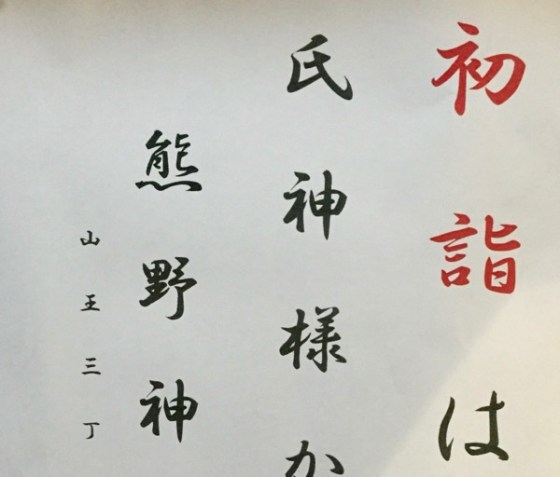 初詣は
氏神様か
熊野神
山王三丁